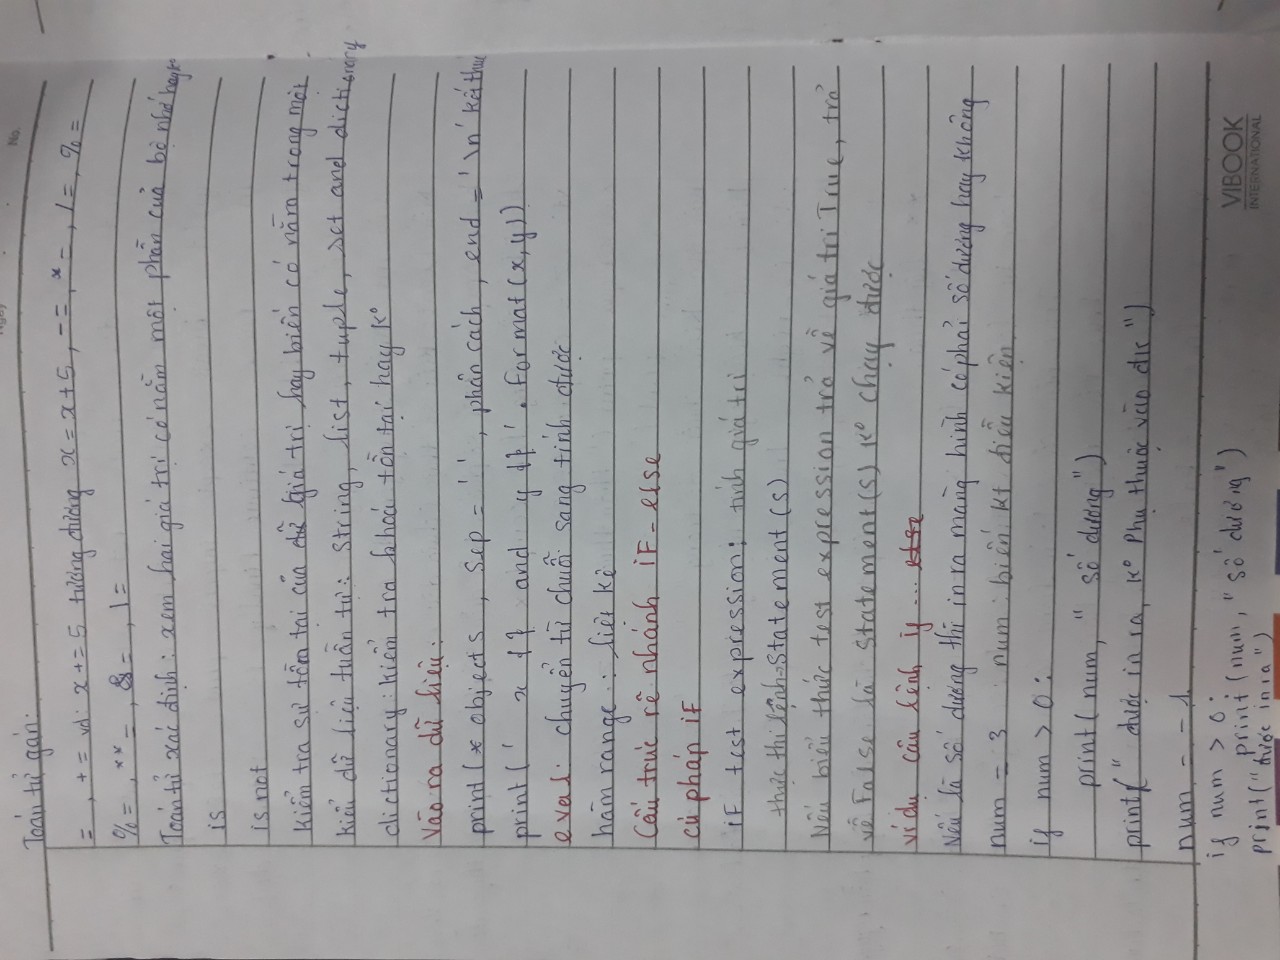 No.
Toán tử gán:
=, += vd: x+=5 tương đương x=x+5, -=, *=, /=, %=
%=, **=, &=, |=
Toán tử xác định: xem hai giá trị có nằm một phần của bộ nhớ hay k°
is
is not
kiểm tra sự tồn tại của giá trị hay biến có nằm trong một
kiểu dữ liệu tuần tự: String, list, tuple, set and dictionary
dictionary: kiểm tra khóa tồn tại hay k°
Vào ra dữ liệu:
print(*objects, sep=' ', phân cách, end='\n' kết thúc
print(' x {} and y {}'. Format(x,y))
eval: chuyển từ chuỗi sang tính được
hàm range: liệt kê
Cấu trúc rẽ nhánh iF-else
cú pháp iF
iF test expression: tính giá trị
thực thi lệnh→Statement(s)
Nếu biểu thức test expression trả về giá trị True, trả
về False là Statement(s) k° chạy được
ví dụ câu lệnh if ...
Nếu là số dương thì in ra màn hình có phải số dương hay không
num = 3 num: biến kt điều kiện
if num > 0:
print(num, "số dương")
print(" được in ra, k° phụ thuộc vào đk")
num = -1
if num > 0:
print(num, "số dương")
print("được in ra")
VIBOOK
INTERNATIONAL